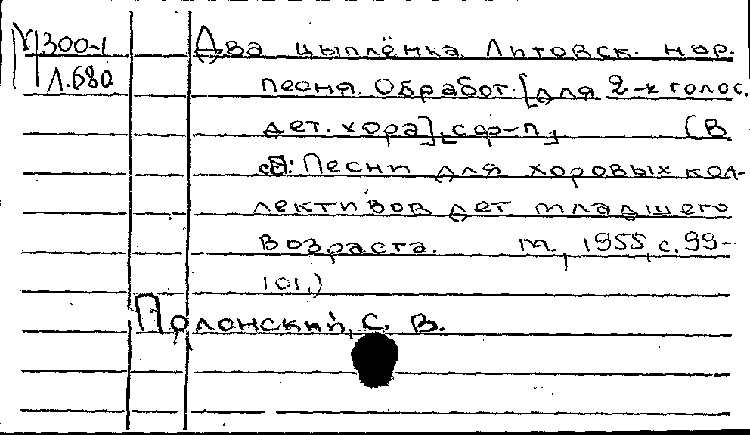 М300-1 Два цыплёнка. Литовск. нар.
Л.680 песня. Обработ. [для 2-х голос.
дет. хора], с ф-п, (В
сб: Песни для хоровых кол-
лективов дет. младшего
возраста. М., 1955, с. 99-
101,)
Полонский, С. В.